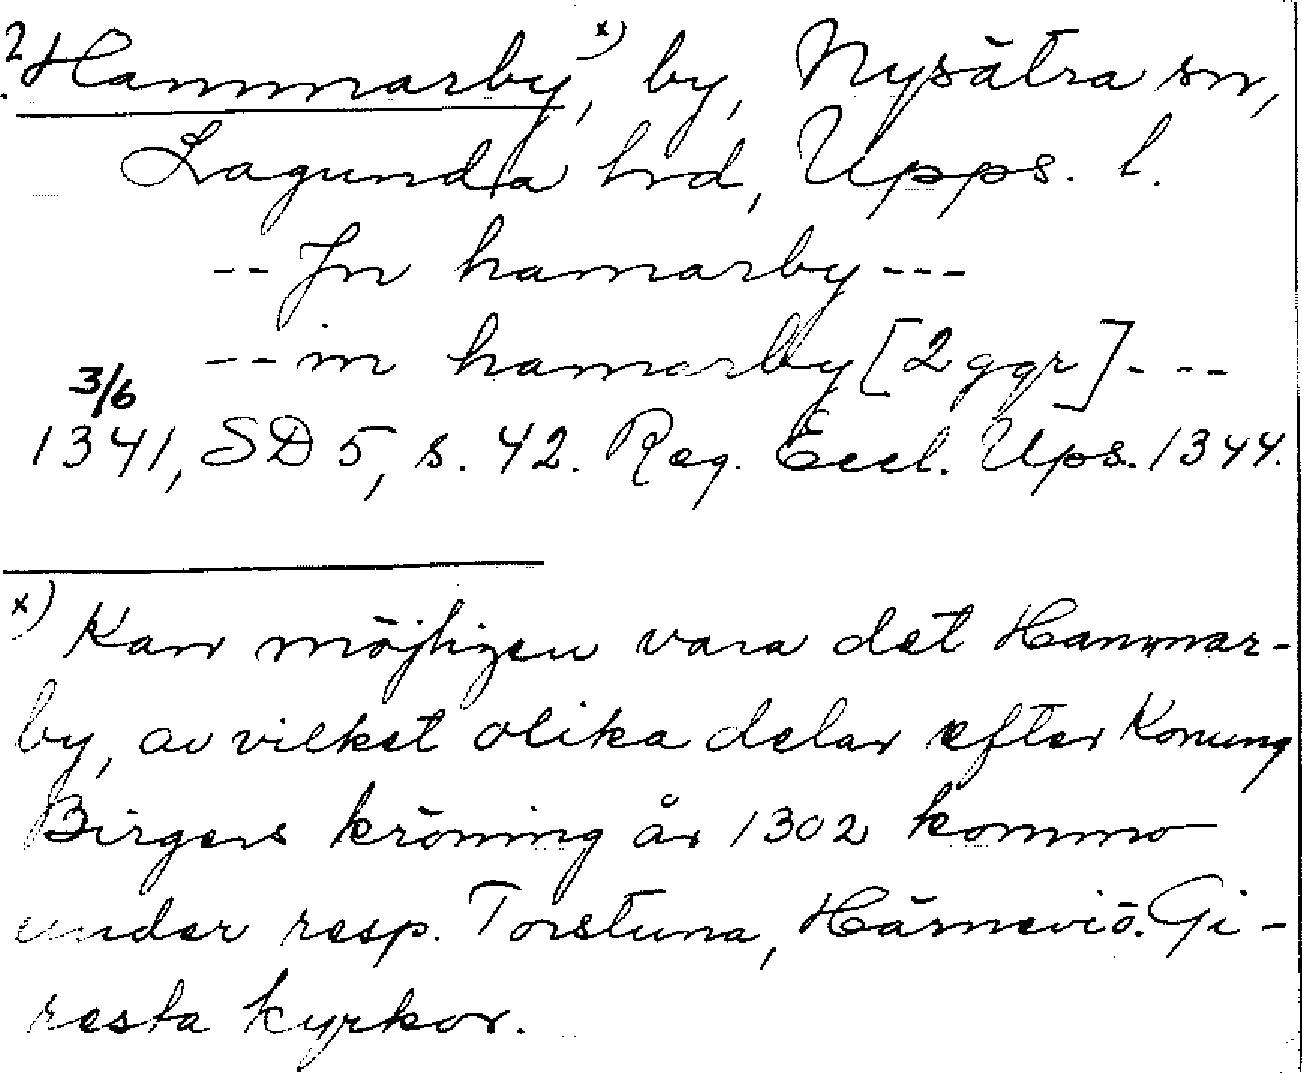 ? Hammarby,x) by, Nysätra sn,
Lagunda hrd, Upps. l.
-- Jn hamarby ---
-- in hamarby [2 ggr] ---
3/6
1341, SD 5, s. 42. Reg. Eccl. Ups. 1344.
x) Kan möjligen vara det Hammar-
by, av vilket olika delar efter Konung
Birgers kröning år 1302 kommo
under resp. Torstuna, Härnevi o. Gi-
resta kyrkor.